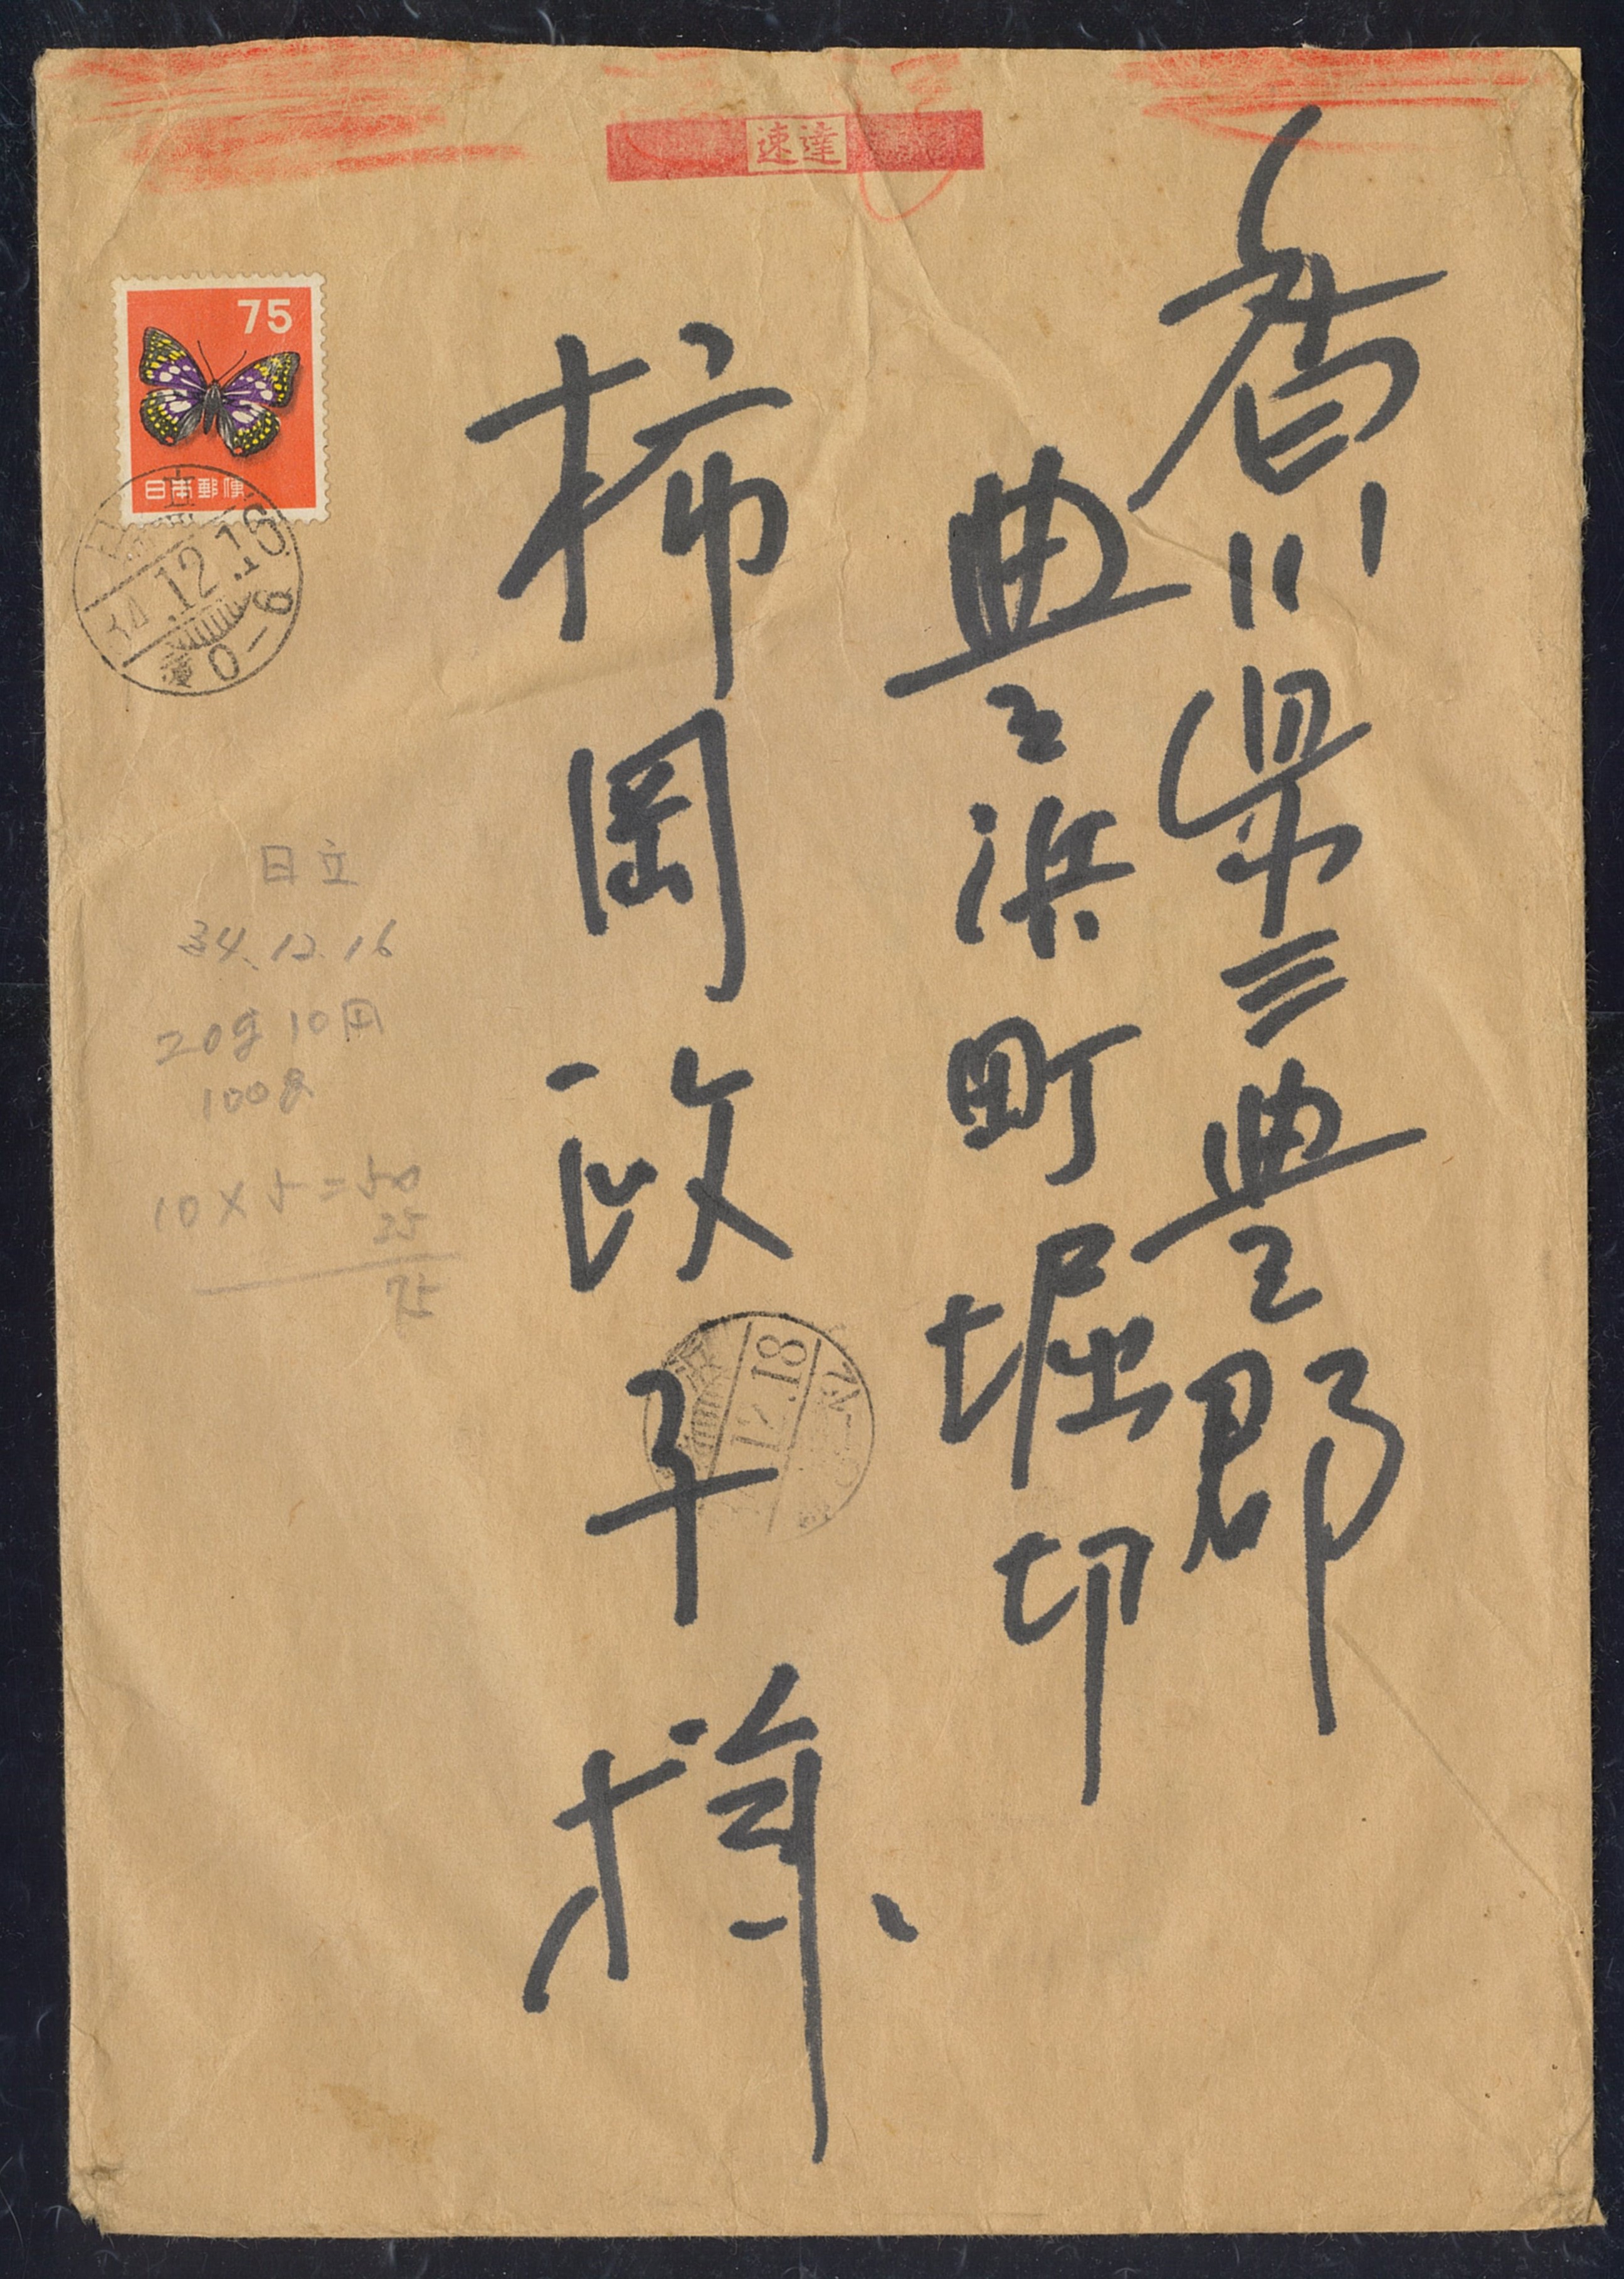 速達
香川県三豊郡
豊浜町堀切
柿岡政子様
75
日本郵便
34.12.16
0-6
日立
34.12.16
20g 10円
100g
10×5=50
25
75
12.18